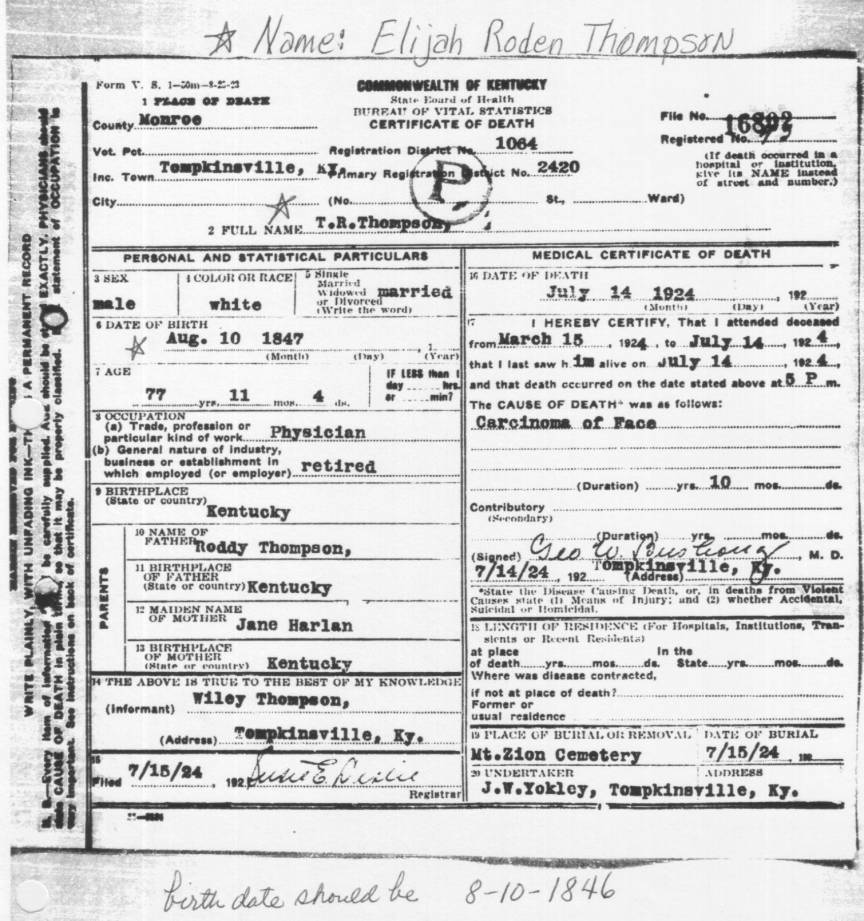 ☆ Name: Elijah Roden Thompson
Form V. S. 1-50m-8-23-23
COMMONWEALTH OF KENTUCKY
State Board of Health
BUREAU OF VITAL STATISTICS
CERTIFICATE OF DEATH
1 PLACE OF DEATH
County Monroe
File No. 16802
Registered No.
Vot. Pct. Registration District No. 1064
(If death occurred in a hospital or institution, give its NAME instead of street and number.)
Inc. Town Tompkinsville, Ky. Primary Registration District No. 2420
P.
City (No. St., Ward)
2 FULL NAME T.R.Thompson,
PERSONAL AND STATISTICAL PARTICULARS
3 SEX
male
4 COLOR OR RACE
white
5 Single
Married
Widowed
or Divorced
(Write the word)
married
6 DATE OF BIRTH
☆ Aug. 10 1847
(Month) (Day) (Year)
7 AGE
77 yrs. 11 mos. 4 ds.
IF LESS than 1
day hrs.
or min?
8 OCCUPATION
(a) Trade, profession or
particular kind of work Physician
(b) General nature of industry,
business or establishment in
which employed (or employer) retired
9 BIRTHPLACE
(State or country)
Kentucky
PARENTS
10 NAME OF
FATHER Roddy Thompson,
11 BIRTHPLACE
OF FATHER
(State or country) Kentucky
12 MAIDEN NAME
OF MOTHER Jane Harlan
13 BIRTHPLACE
OF MOTHER
(State or country) Kentucky
14 THE ABOVE IS TRUE TO THE BEST OF MY KNOWLEDGE
(Informant) Wiley Thompson,
(Address) Tompkinsville, Ky.
15
Filed 7/15/24, 192 Susie E Leslie
Registrar
MEDICAL CERTIFICATE OF DEATH
16 DATE OF DEATH
July 14 1924, 192
(Month) (Day) (Year)
17 I HEREBY CERTIFY, That I attended deceased
from March 15, 1924, to July 14, 1924,
that I last saw him alive on July 14, 1924,
and that death occurred on the date stated above at 5 P m.
The CAUSE OF DEATH* was as follows:
Carcinoma of Face
(Duration) yrs. 10 mos. ds.
Contributory
(Secondary)
(Duration) yrs. mos. ds.
(Signed) Geo W. Bushong, M. D.
7/14/24, 192 (Address) Tompkinsville, Ky.
*State the Disease Causing Death, or, in deaths from Violent
Causes state (1) Means of Injury; and (2) whether Accidental,
Suicidal or Homicidal.
18 LENGTH OF RESIDENCE (For Hospitals, Institutions, Tran-
sients or Recent Residents)
at place In the
of death yrs. mos. ds. State yrs. mos. ds.
Where was disease contracted,
if not at place of death?
Former or
usual residence
19 PLACE OF BURIAL OR REMOVAL
Mt.Zion Cemetery
DATE OF BURIAL
7/15/24, 192
20 UNDERTAKER
J.W.Yokley,
ADDRESS
Tompkinsville, Ky.
WRITE PLAINLY, WITH UNFADING INK—TH A PERMANENT RECORD
N. B.—Every item of information be carefully supplied. AGE should be EXACTLY. PHYSICIANS should
CAUSE OF DEATH in plain terms, so that it may be properly classified. statement of OCCUPATION is
very important. See instructions on back of certificate.
birth date should be 8-10-1846